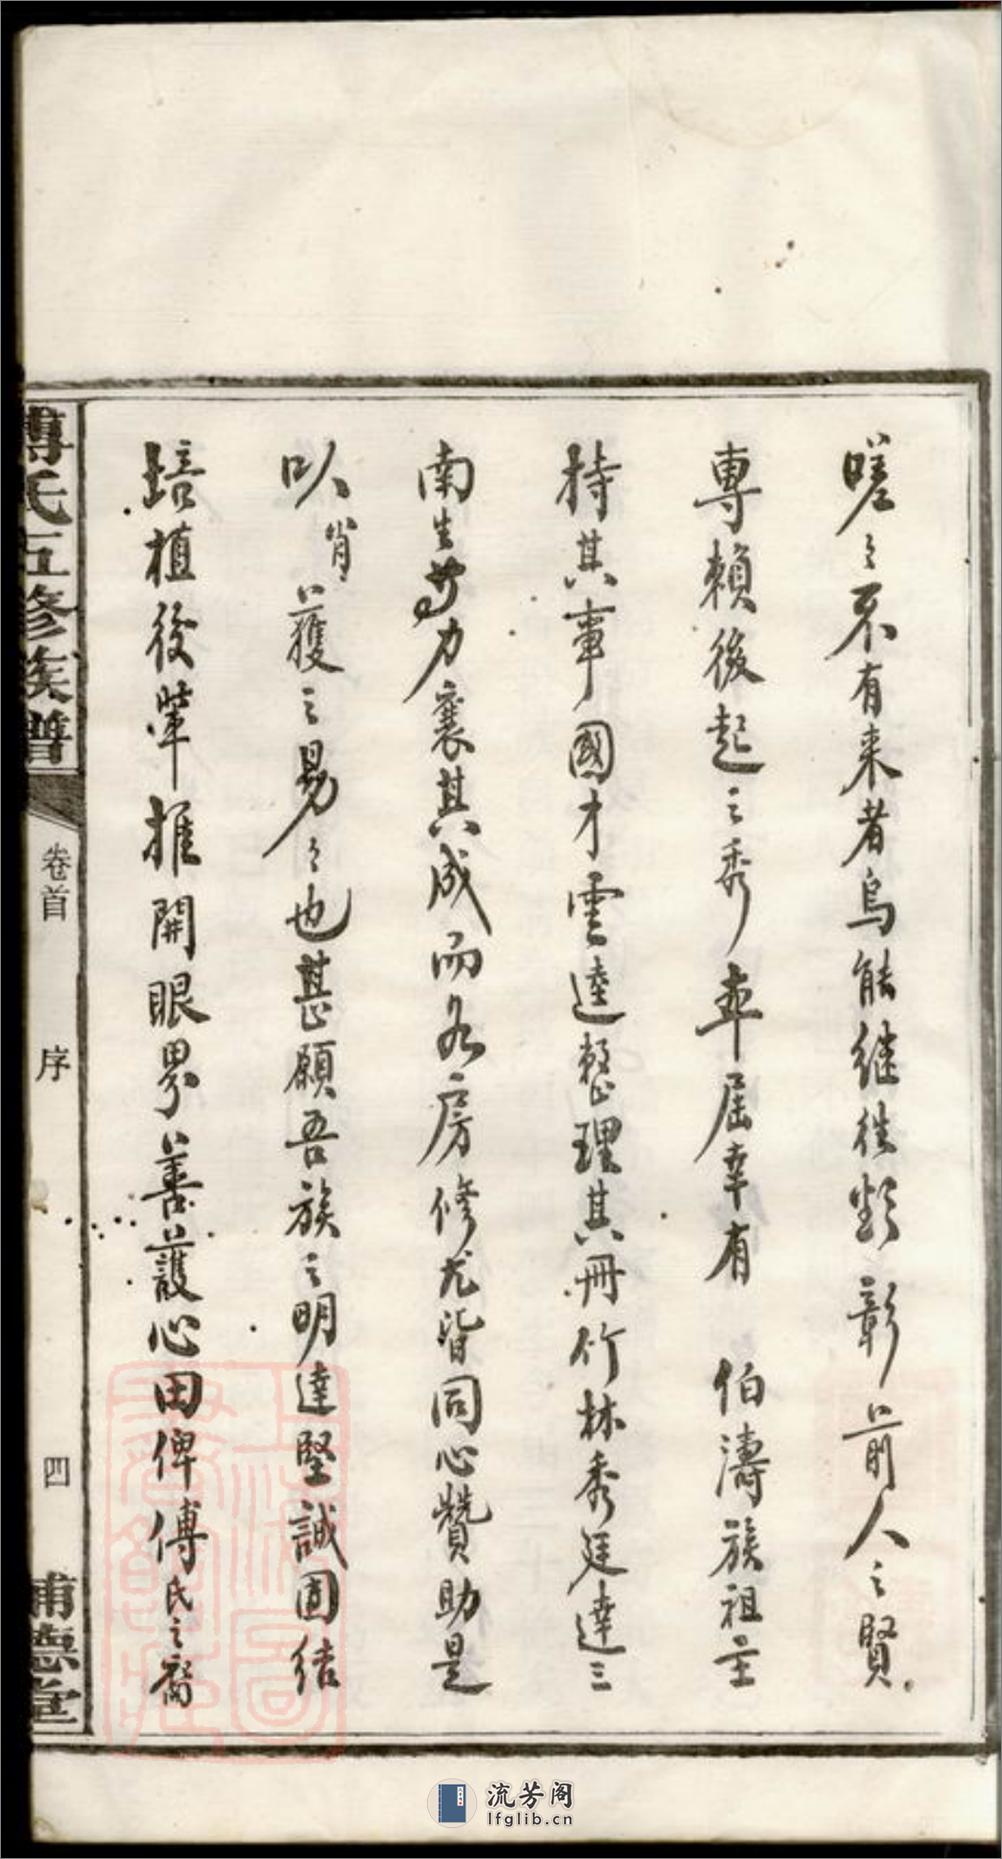 嗟〻不有来者烏能继徃彰前人之賢
專賴後起之秀屆幸有 伯濤族祖主
持其事國才雲達整理其冊竹林秀廷達三
南生努力襄其成而各房修尤皆同心贊助是
以肖獲之易〻也甚願吾族之明達堅誠固結
培植後輩推開眼界善護心田俾傅氏之裔
傅氏五修族譜
卷首
序
四
流芳阁
lfglib.cn